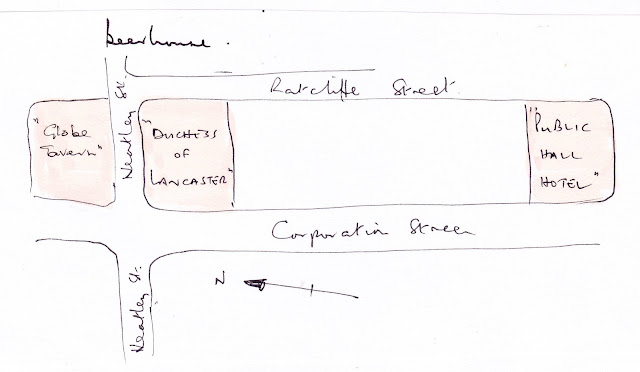 beerhouse.
Ratcliffe Street.
Heatley St.
"Globe
Tavern"
"DUCHESS
of
LANCASTER"
"PUBLIC
HALL
HOTEL"
Corporation Street
Heatley St.
N